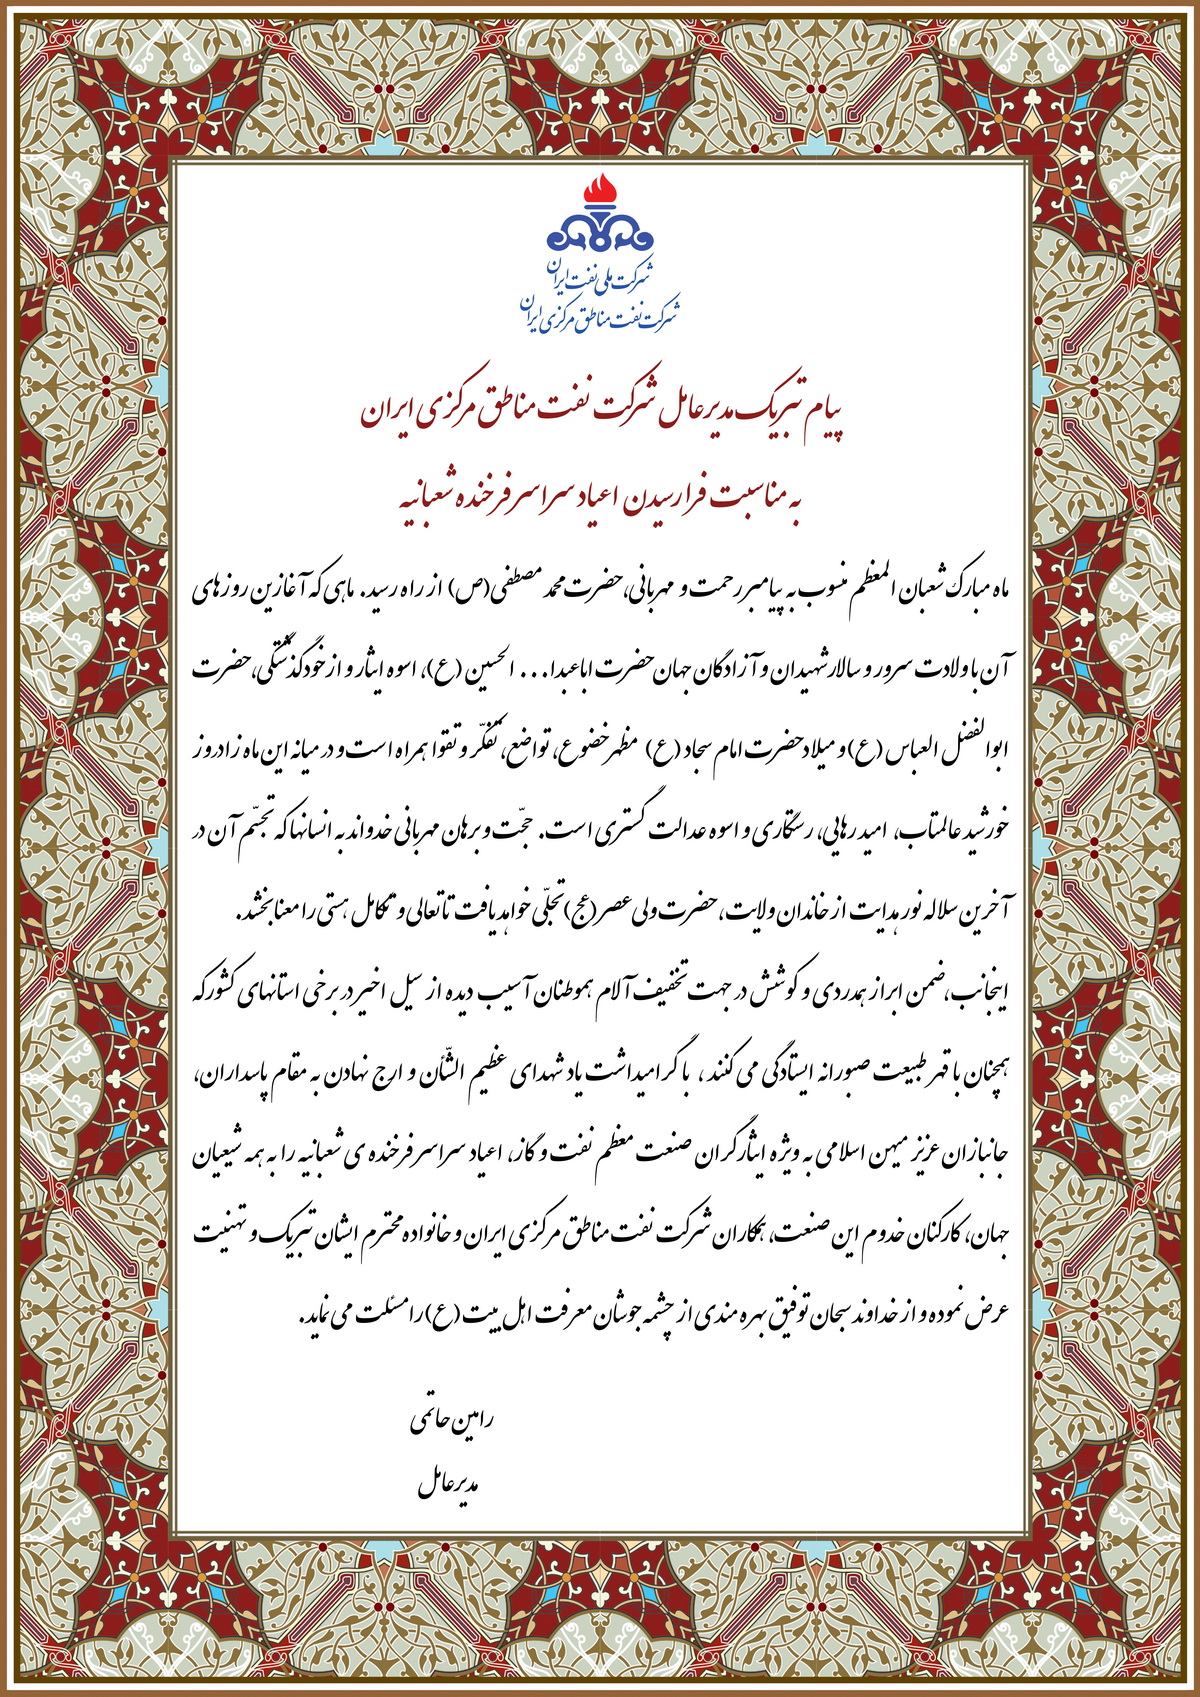 شرکت ملی نفت ایران
شرکت نفت مناطق مرکزی ایران
پیام تبریک مدیرعامل شرکت نفت مناطق مرکزی ایران
به مناسبت فرارسیدن اعیاد سراسر فرخنده شعبانیه
ماه مبارک شعبان المعظم منسوب به پیامبر رحمت و مهربانی، حضرت محمد مصطفی(ص) از راه رسید. ماهی که آغازین روزهای
آن با ولادت سرور و سالار شهیدان و آزادگان جهان حضرت اباعبدا... الحسین (ع)، اسوه ایثار و از خودگذشتگی، حضرت
ابوالفضل العباس (ع) و میلاد حضرت امام سجاد (ع) مظهر خضوع، تواضع، تفکّر و تقوا همراه است و در میانه این ماه زادروز
خورشید عالمتاب، امید رهایی، رستگاری و اسوه عدالت گستری است. حجّت و برهان مهربانی خداوند به انسانها که تجسّم آن در
آخرین سلاله نور هدایت از خاندان ولایت، حضرت ولی عصر(عج) تجلّی خواهد یافت تا تعالی و تکامل هستی را معنا بخشد.
اینجانب، ضمن ابراز همدردی و کوشش در جهت تخفیف آلام هموطنان آسیب دیده از سیل اخیر در برخی استانهای کشور که
همچنان با قهر طبیعت صبورانه ایستادگی می کنند، با گرامیداشت یاد شهدای عظیم الشّأن و ارج نهادن به مقام پاسداران،
جانبازان عزیز میهن اسلامی به ویژه ایثارگران صنعت معظم نفت و گاز، اعیاد سراسر فرخنده ی شعبانیه را به همه شیعیان
جهان، کارکنان خدوم این صنعت، همکاران شرکت نفت مناطق مرکزی ایران و خانواده محترم ایشان تبریک و تهنیت
عرض نموده و از خداوند سبحان توفیق بهره مندی از چشمه جوشان معرفت اهل بیت (ع) را مسئلت می نماید.
رامین حاتمی
مدیرعامل